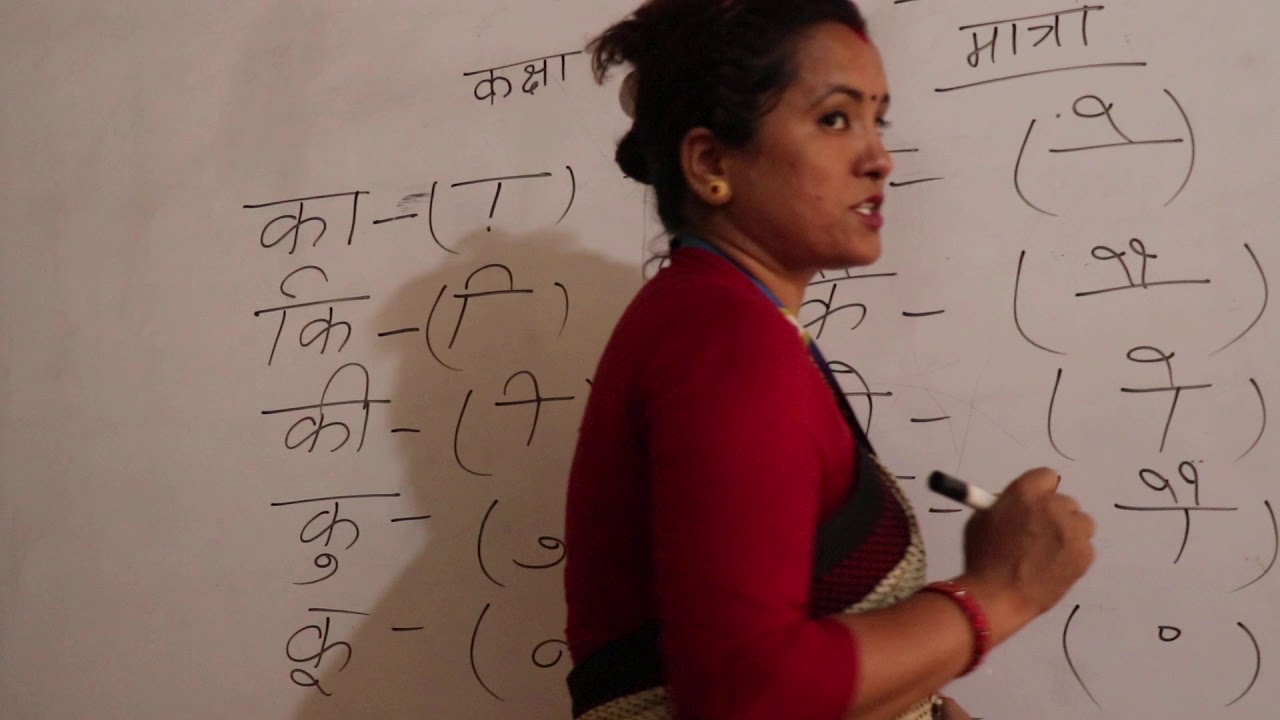 कक्षा मात्रा
का - ( ा ) = ( े )
कि - ( ि ) कै - ( ै )
की - ( ी - ( ो )
कु - ( ु - ौ )
कू - ( ( ं )